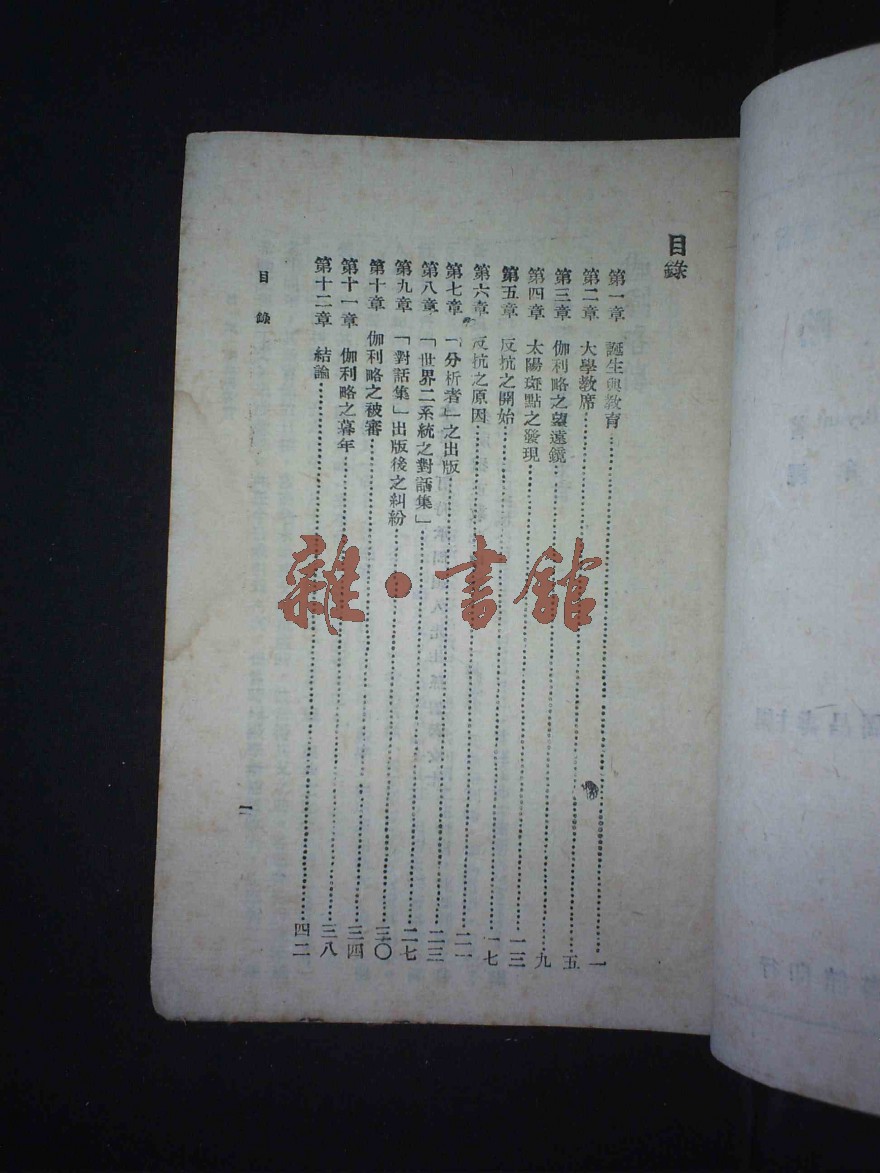 目錄
第一章 誕生與教育 一
第二章 大學教席 五
第三章 伽利略之望遠鏡 九
第四章 太陽斑點之發現 一三
第五章 反抗之開始 一七
第六章 反抗之原因 二一
第七章 「分析者」之出版 二三
第八章 「世界二系統之對話集」 二七
第九章 「對話集」出版後之糾紛 三〇
第十章 伽利略之被審 三四
第十一章 伽利略之暮年 三八
第十二章 結論 四二
目錄
一
雜·書館